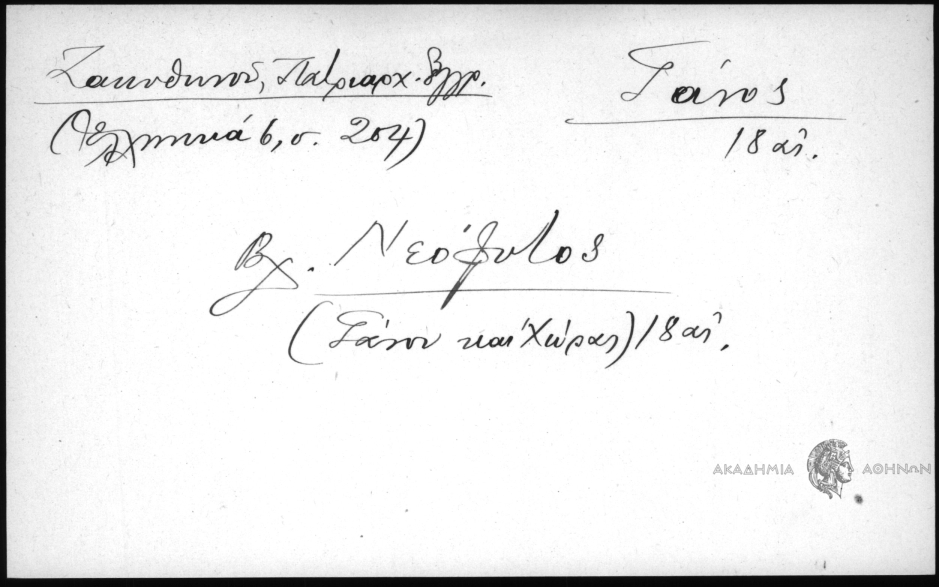 Ζακυθηνοῦ, Πατριαρχ. Ἔγγρ.
(Ἑλληνικά 6, σ. 204)
Γάνος
18 αἰ.
Βλ. Νεόφυτος
(Γάνου καὶ Χώρας) 18 αἰ.
ΑΚΑΔΗΜΙΑ ΑΘΗΝΩΝ